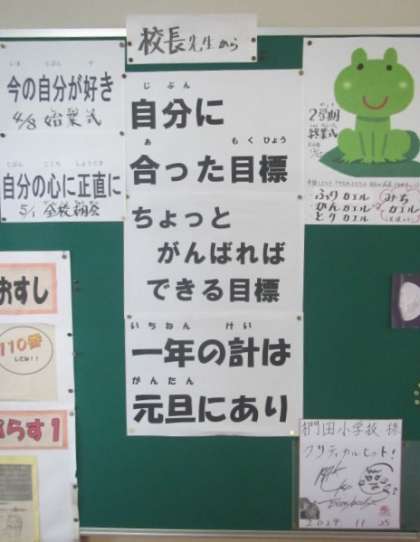 校長先生から
いま じぶん す
今の自分が好き
4/8 始業式
じぶん こころ しょうじき
自分の心に正直に
5/1 全校朝会
じぶん
自分に
あ もくひょう
合った目標
ちょっと
がんばれば
できる目標
いちねん けい
一年の計は
がんたん
元旦にあり
2学期
終業式
ふりカエル
かんがカエル
とりカエル
みち
カエル
おすし
110番
らす1
小学校 様
クリティカルヒット!
2024 11 25